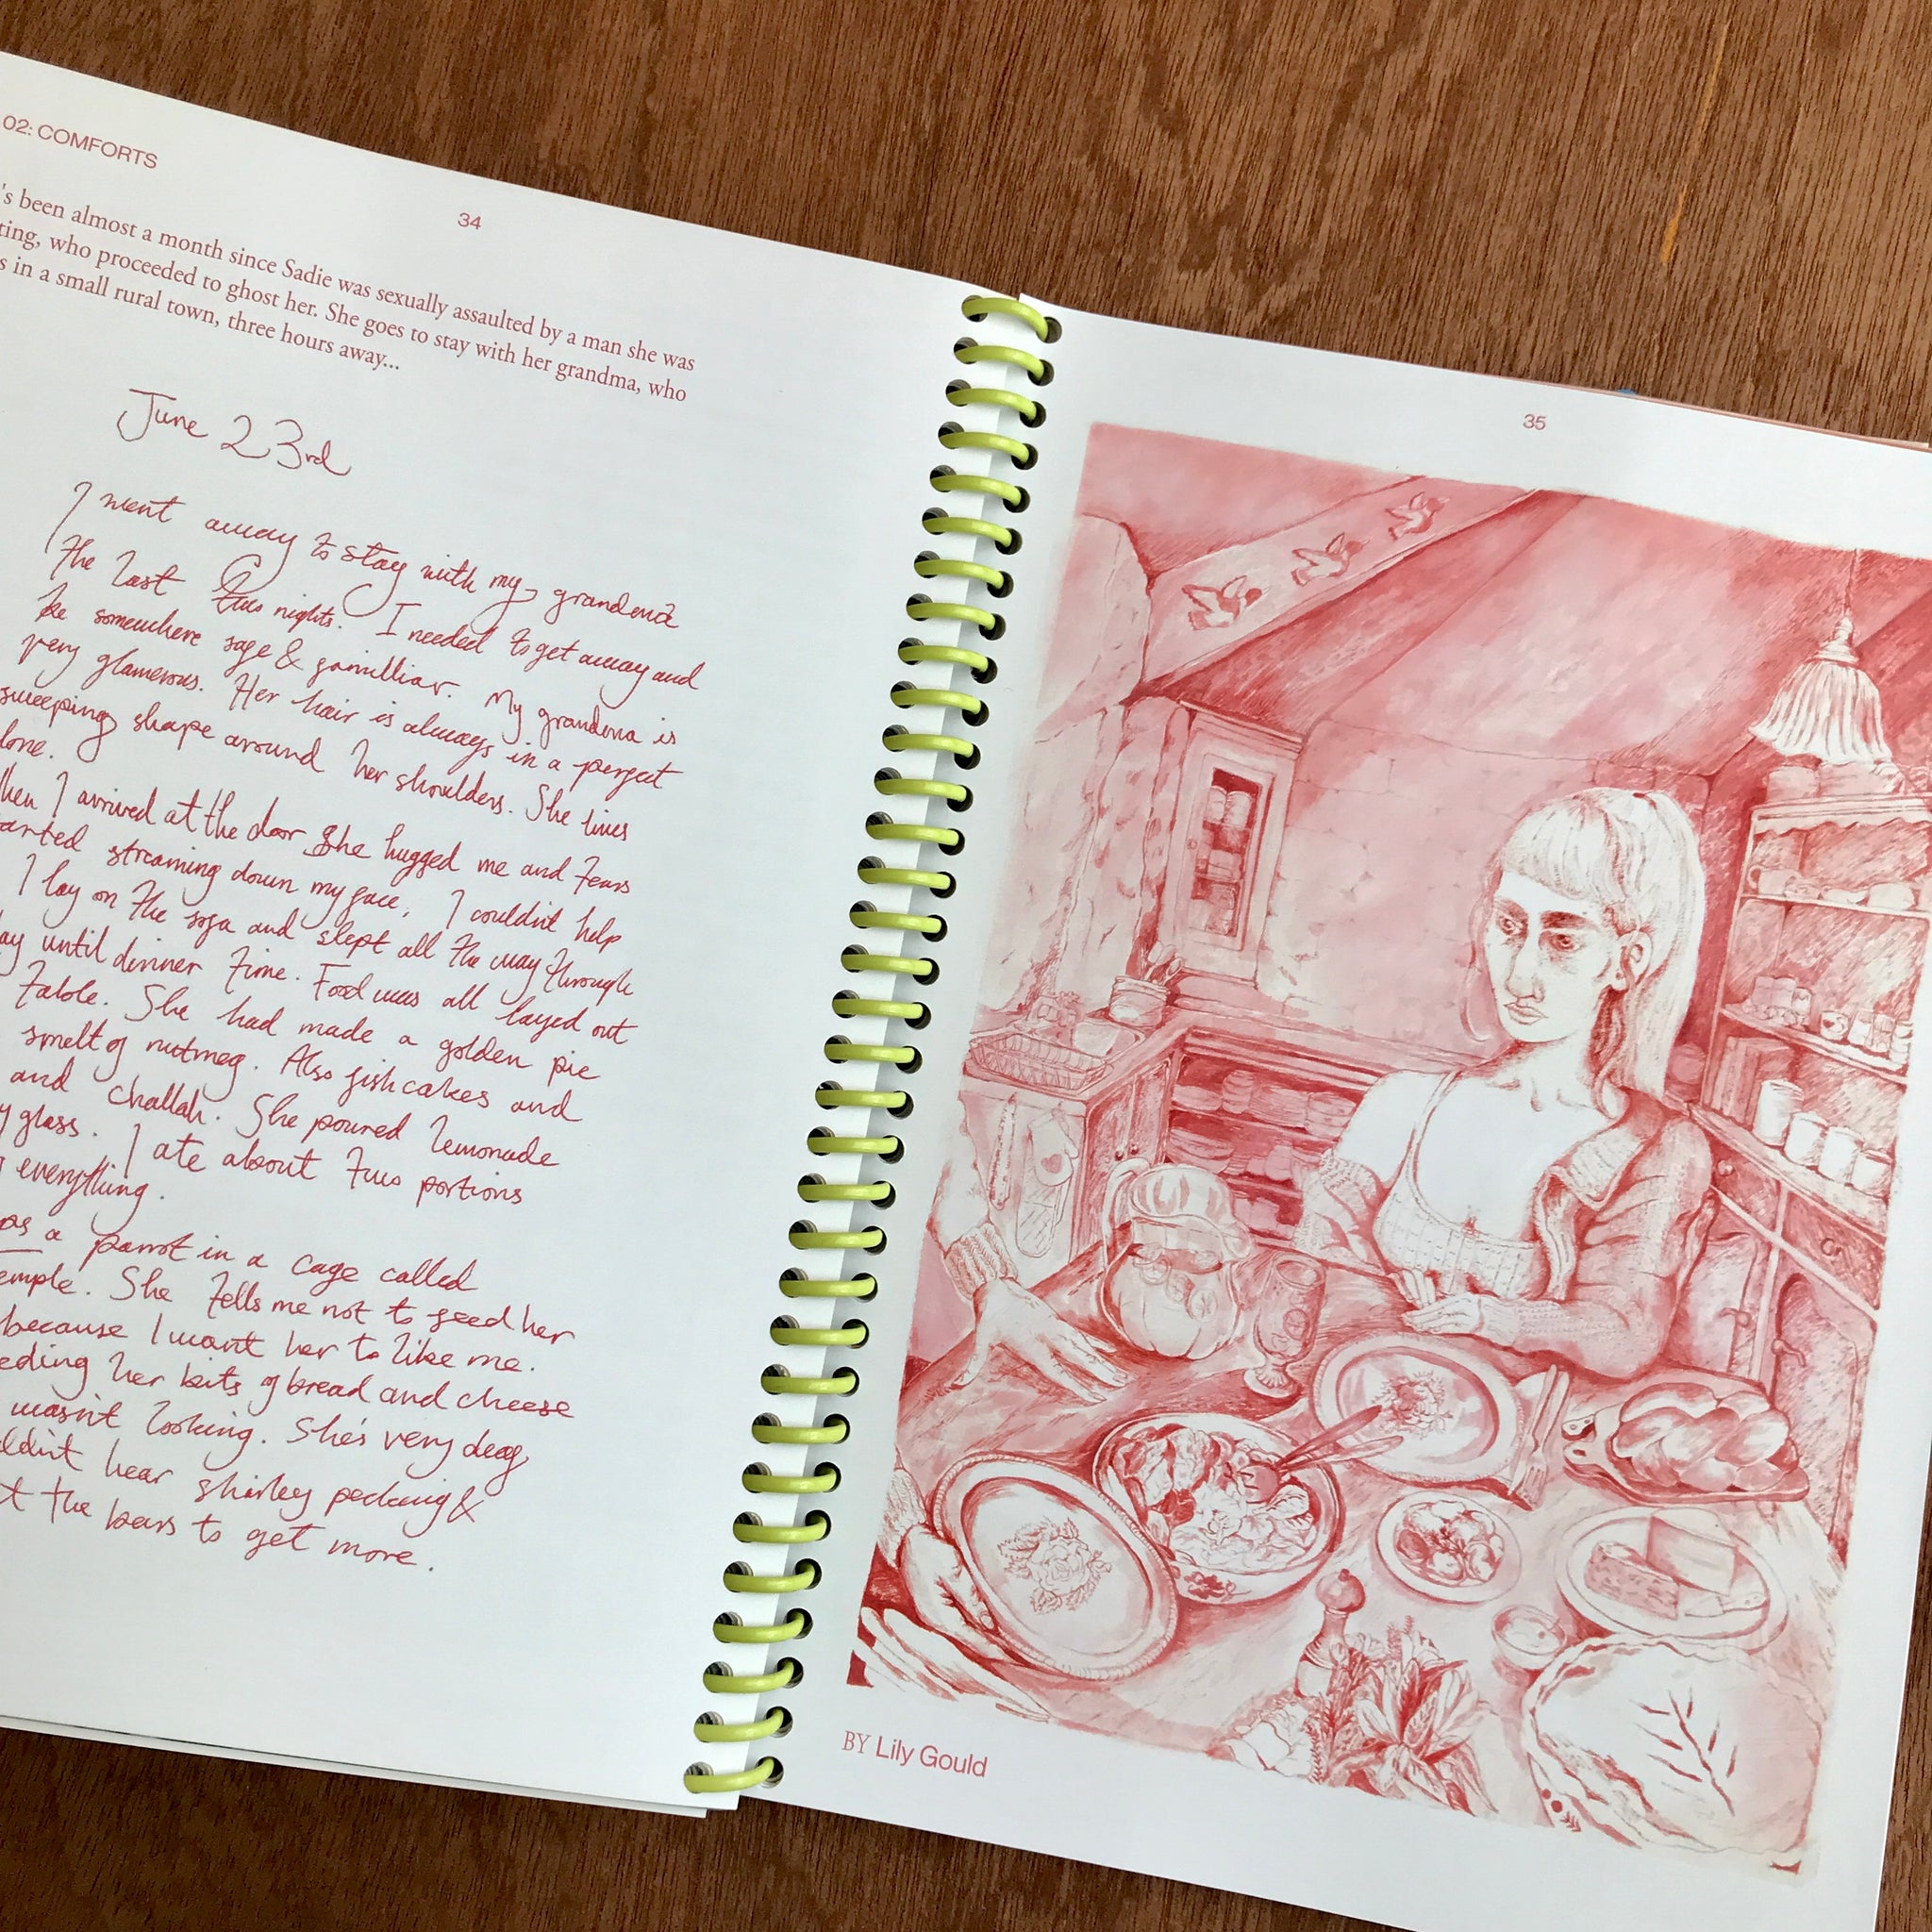 02: COMFORTS
34
's been almost a month since Sadie was sexually assaulted by a man she was
ting, who proceeded to ghost her. She goes to stay with her grandma, who
s in a small rural town, three hours away...
June 23rd
I went away to stay with my grandma
the last two nights. I needed to get away and
be somewhere safe & familliar. My grandma is
very glamerous. Her hair is always in a perfect
sweeping shape around her shoulders. She lives
lone.
hen I arrived at the door she hugged me and tears
arted streaming down my face, I couldn't help
I lay on the sofa and slept all the way through
ay until dinner time. Food was all layed out
table. She had made a golden pie
smelt of nutmeg. Also fishcakes and
and challah. She poured lemonade
y glass. I ate about two portions
everything.
as a parrot in a cage called
emple. She tells me not to feed her
because I want her to like me.
eding her bits of bread and cheese
wasn't looking. She's very deaf
ldn't hear shirley pecking &
t the bars to get more.
35
BY Lily Gould